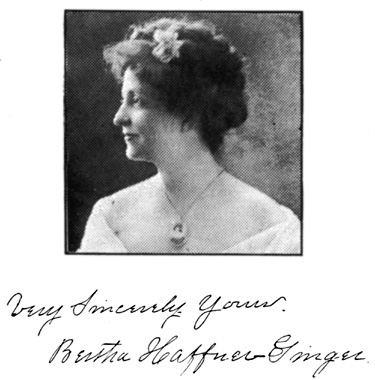 Very Sincerely Yours.
Bertha Haffner-Ginger